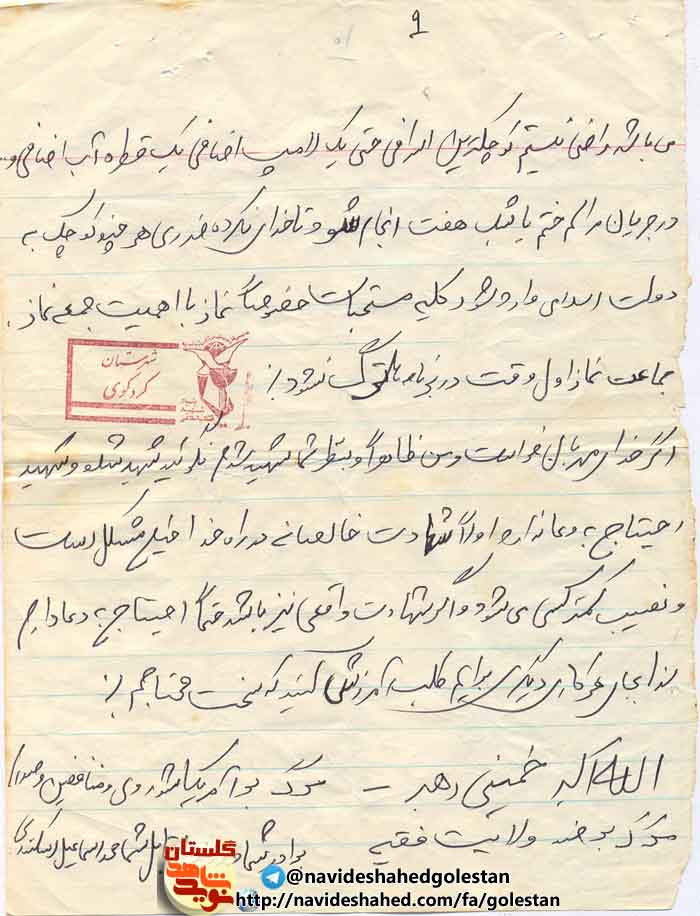 9
می باشد راضی نیستم کوچکترین اسرافی حتی یک لامپ اضافی یک قطره آب اضافی و...
در جریان مراسم ختم یا شب هفت انجام شود و تا خدای نکرده ضرری هر چند کوچک به
دولت اسلامی وارد شود کلیه مستحبات خصوصاً نماز با اهمیت جمعه نماز
جماعت نماز اول وقت در برنامه ها ترک نشود
شهرستان
کردکوی
اگر خدای مهربان خواست و من ظاهراً و بنظر شما شهید شدم نگوئید شهید شده و شهید
احتیاج به دعا ندارد اولاً شهادت خالصانه در راه خدا خیلی مشکل است
و نصیب کمتر کسی می شود و اگر شهادت واقعی نیز باشد حتماً احتیاج به دعا دارم
بجای هر کار دیگری برایم طلب آمرزش کنید که سخت محتاجم
الله اکبر خمینی رهبر - مرگ بر آمریکا شوروی و منافقین و صدام
مرگ بر ضد ولایت فقیه
برادر شما اسماعیل
گلستان
نوید شاهد
@navideshahedgolestan
http://navideshahed.com/fa/golestan